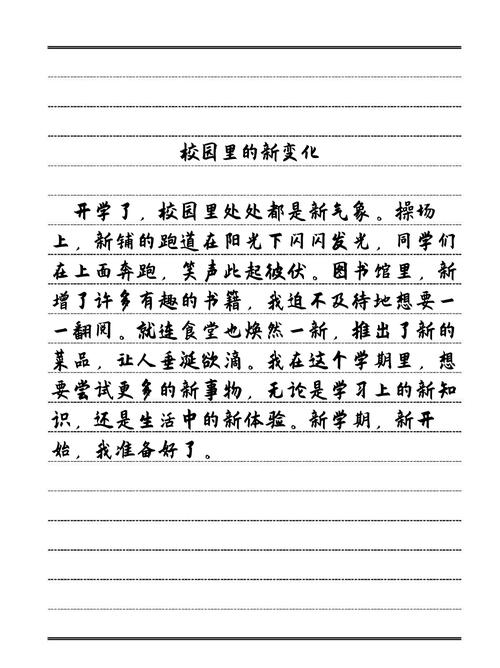 校园里的新变化
开学了，校园里处处都是新气象。操场
上，新铺的跑道在阳光下闪闪发光，同学们
在上面奔跑，笑声此起彼伏。图书馆里，新
增了许多有趣的书籍，我迫不及待地想要一
一翻阅。就连食堂也焕然一新，推出了新的
菜品，让人垂涎欲滴。我在这个学期里，想
要尝试更多的新事物，无论是学习上的新知
识，还是生活中的新体验。新学期，新开
始，我准备好了。